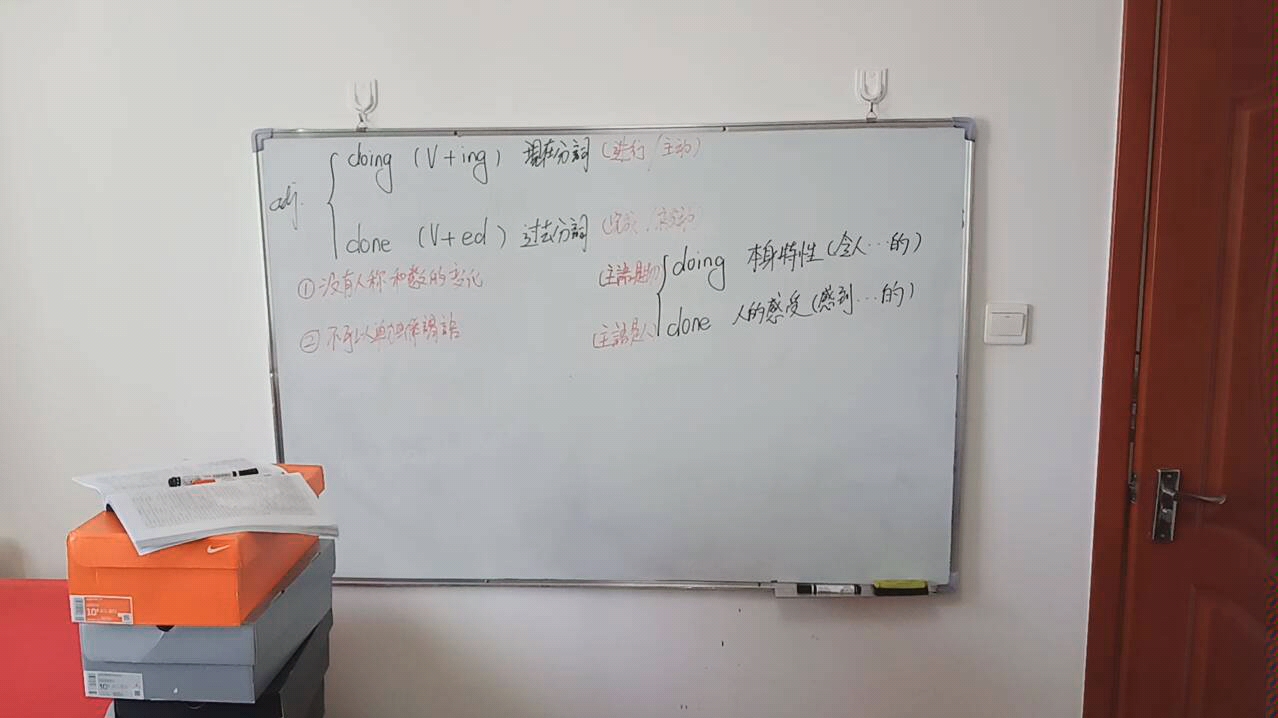 adj.
doing (V+ing) 现在分詞 (进行/主动)
done (V+ed) 过去分詞 (完成/被动)
①没有人称和数的变化
②不可以单独作謂語
(主語是物) doing 本身特性(令人…的)
(主語是人) done 人的感受(感到…的)